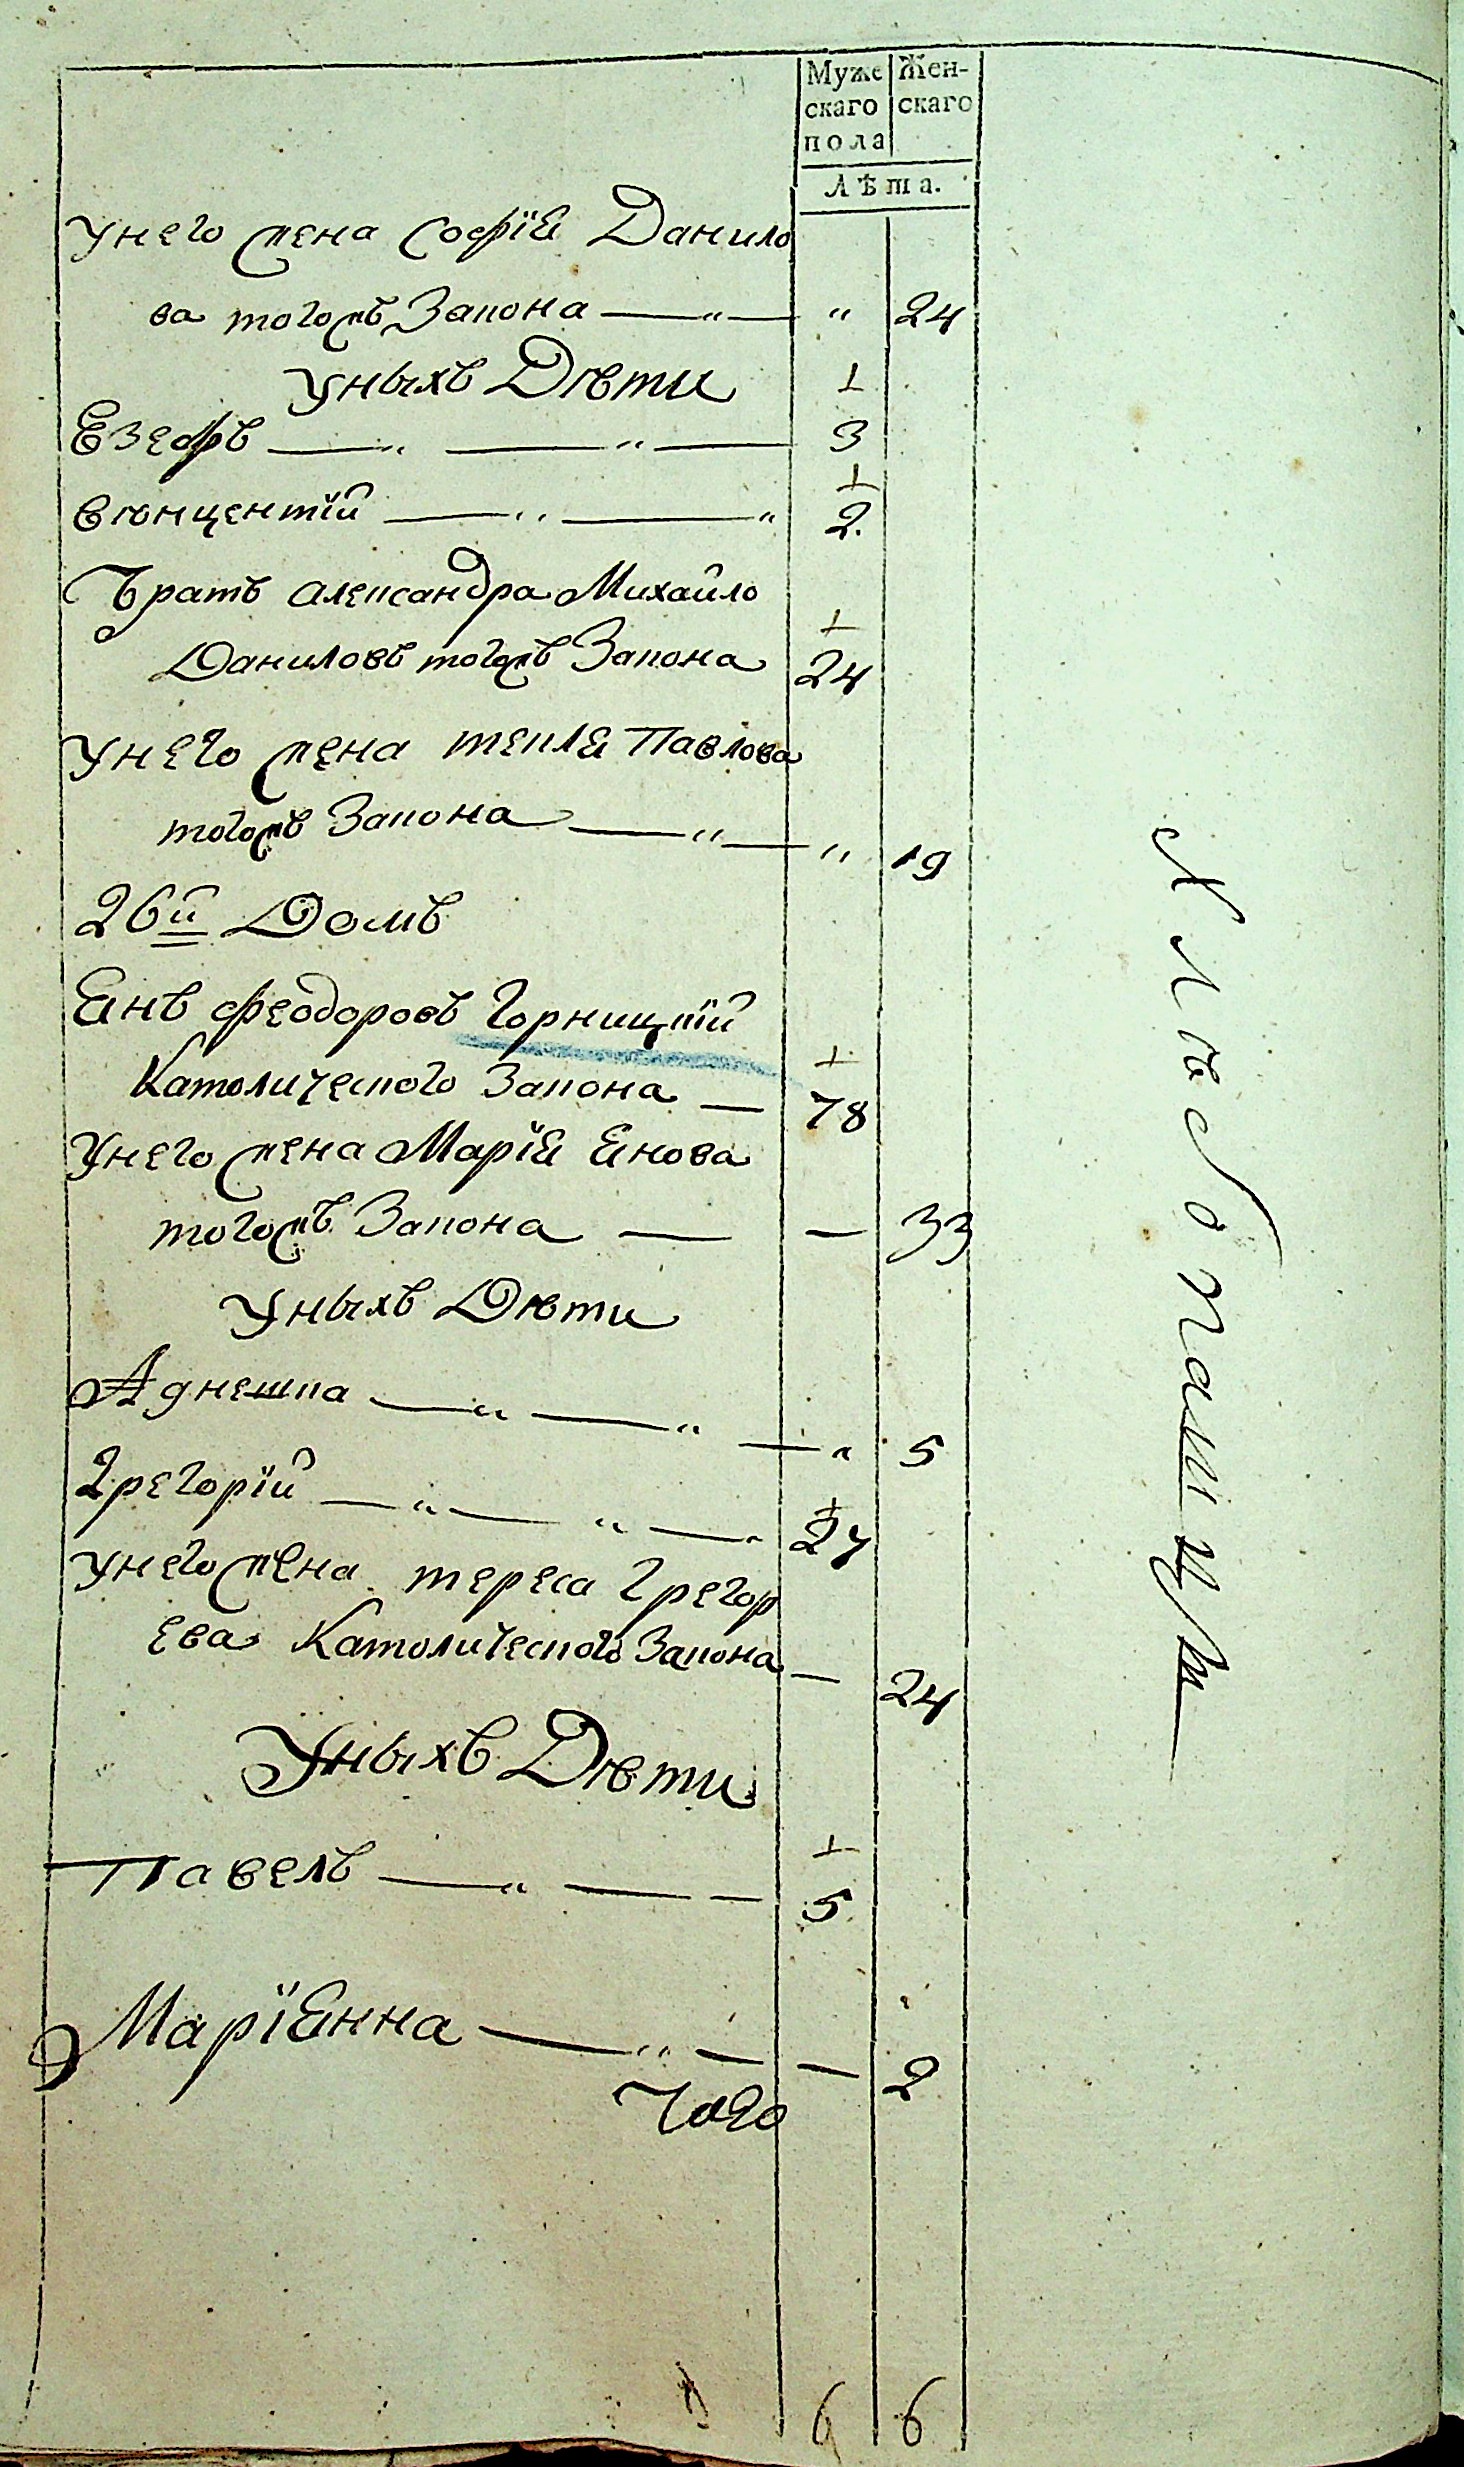 Муже Жен-
скаго скаго
пола
Лѣта.
унего жена Софїя Данило
ва тогожъ Закона — „ — „ 24
уныхъ Дѣти 1
Езефъ — „ — „ — 3
1
вѣнцентїй — „ — „ 2.
Братъ александра Михайло 1
Даниловъ тогожъ Закона 24
унего жена текля Павлова
тогожъ Закона — „ — „ 19
26й Домъ
Янъ Феодоровъ Горницкїй 1
Католического Закона — 78
Унего жена Марїя Янова
тогожъ Закона — — 33
Уныхъ Дѣти
Агнешка — „ — „ — „ 5
Грегорїй — „ — „ — 1
27
унего жена тереса Грегор
ева Католического Закона — 24
Уныхъ Дѣти
1
Павелъ — „ — — 5
Марїянна — „ — — 2
6 6